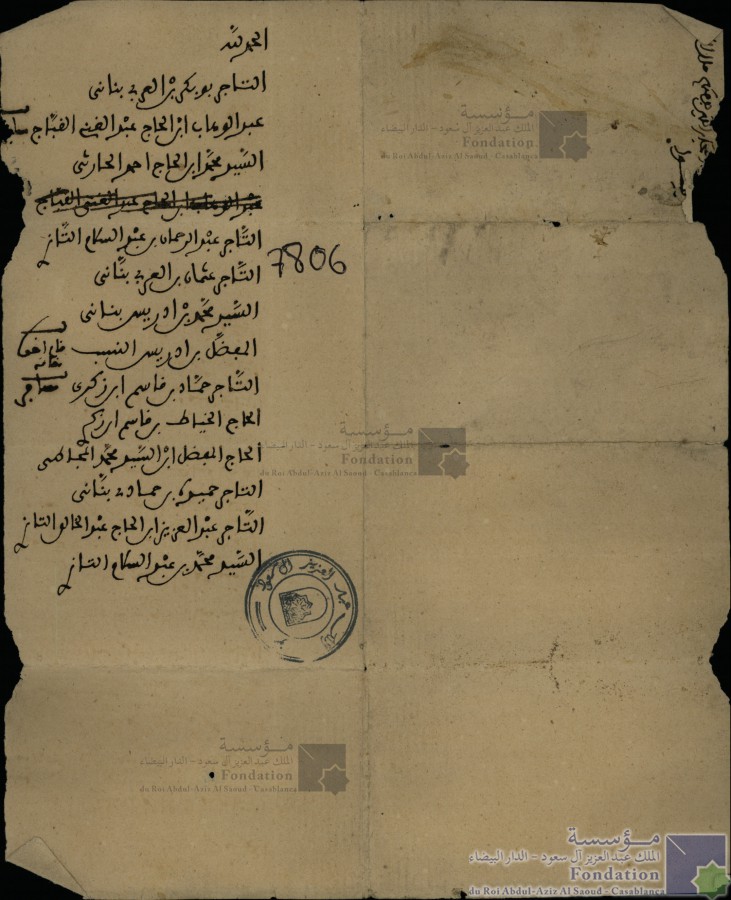 الحمد لله
التاجر بوبكر بن العربي بناني
عبد الوهاب ابن الحاج عبد الغني القباج
السيد محمد ابن الحاج احمد الحارثي
عبد الوهاب ابن الحاج عبد الغني القباج
التاجر عبد الرحمان بن عبد السلام التاز
التاجر عثمان بن العربي بناني
7806
السيد محمد بن ادريس بناني
المفضل بن ادريس
التاجر حماد بن قاسم ابن زكري
الحاج الخياط بن قاسم ابن زكر
الحاج المفضل ابن السيد محمد
التاجر بن حماد بناني
التاجر عبد العزيز ابن الحاج عبد الخالق التاز
السيد محمد بن عبد السلام التاز
عبد العزيز آل سعود
مؤسسة
الملك عبد العزيز آل سعود - الدار البيضاء
Fondation
du Roi Abdul-Aziz Al Saoud - Casablanca
مؤسسة
الملك عبد العزيز آل سعود - الدار البيضاء
Fondation
du Roi Abdul-Aziz Al Saoud - Casablanca
مؤسسة
الملك عبد العزيز آل سعود - الدار البيضاء
Fondation
du Roi Abdul-Aziz Al Saoud - Casablanca
مؤسسة
الملك عبد العزيز آل سعود - الدار البيضاء
Fondation
du Roi Abdul-Aziz Al Saoud - Casablanca